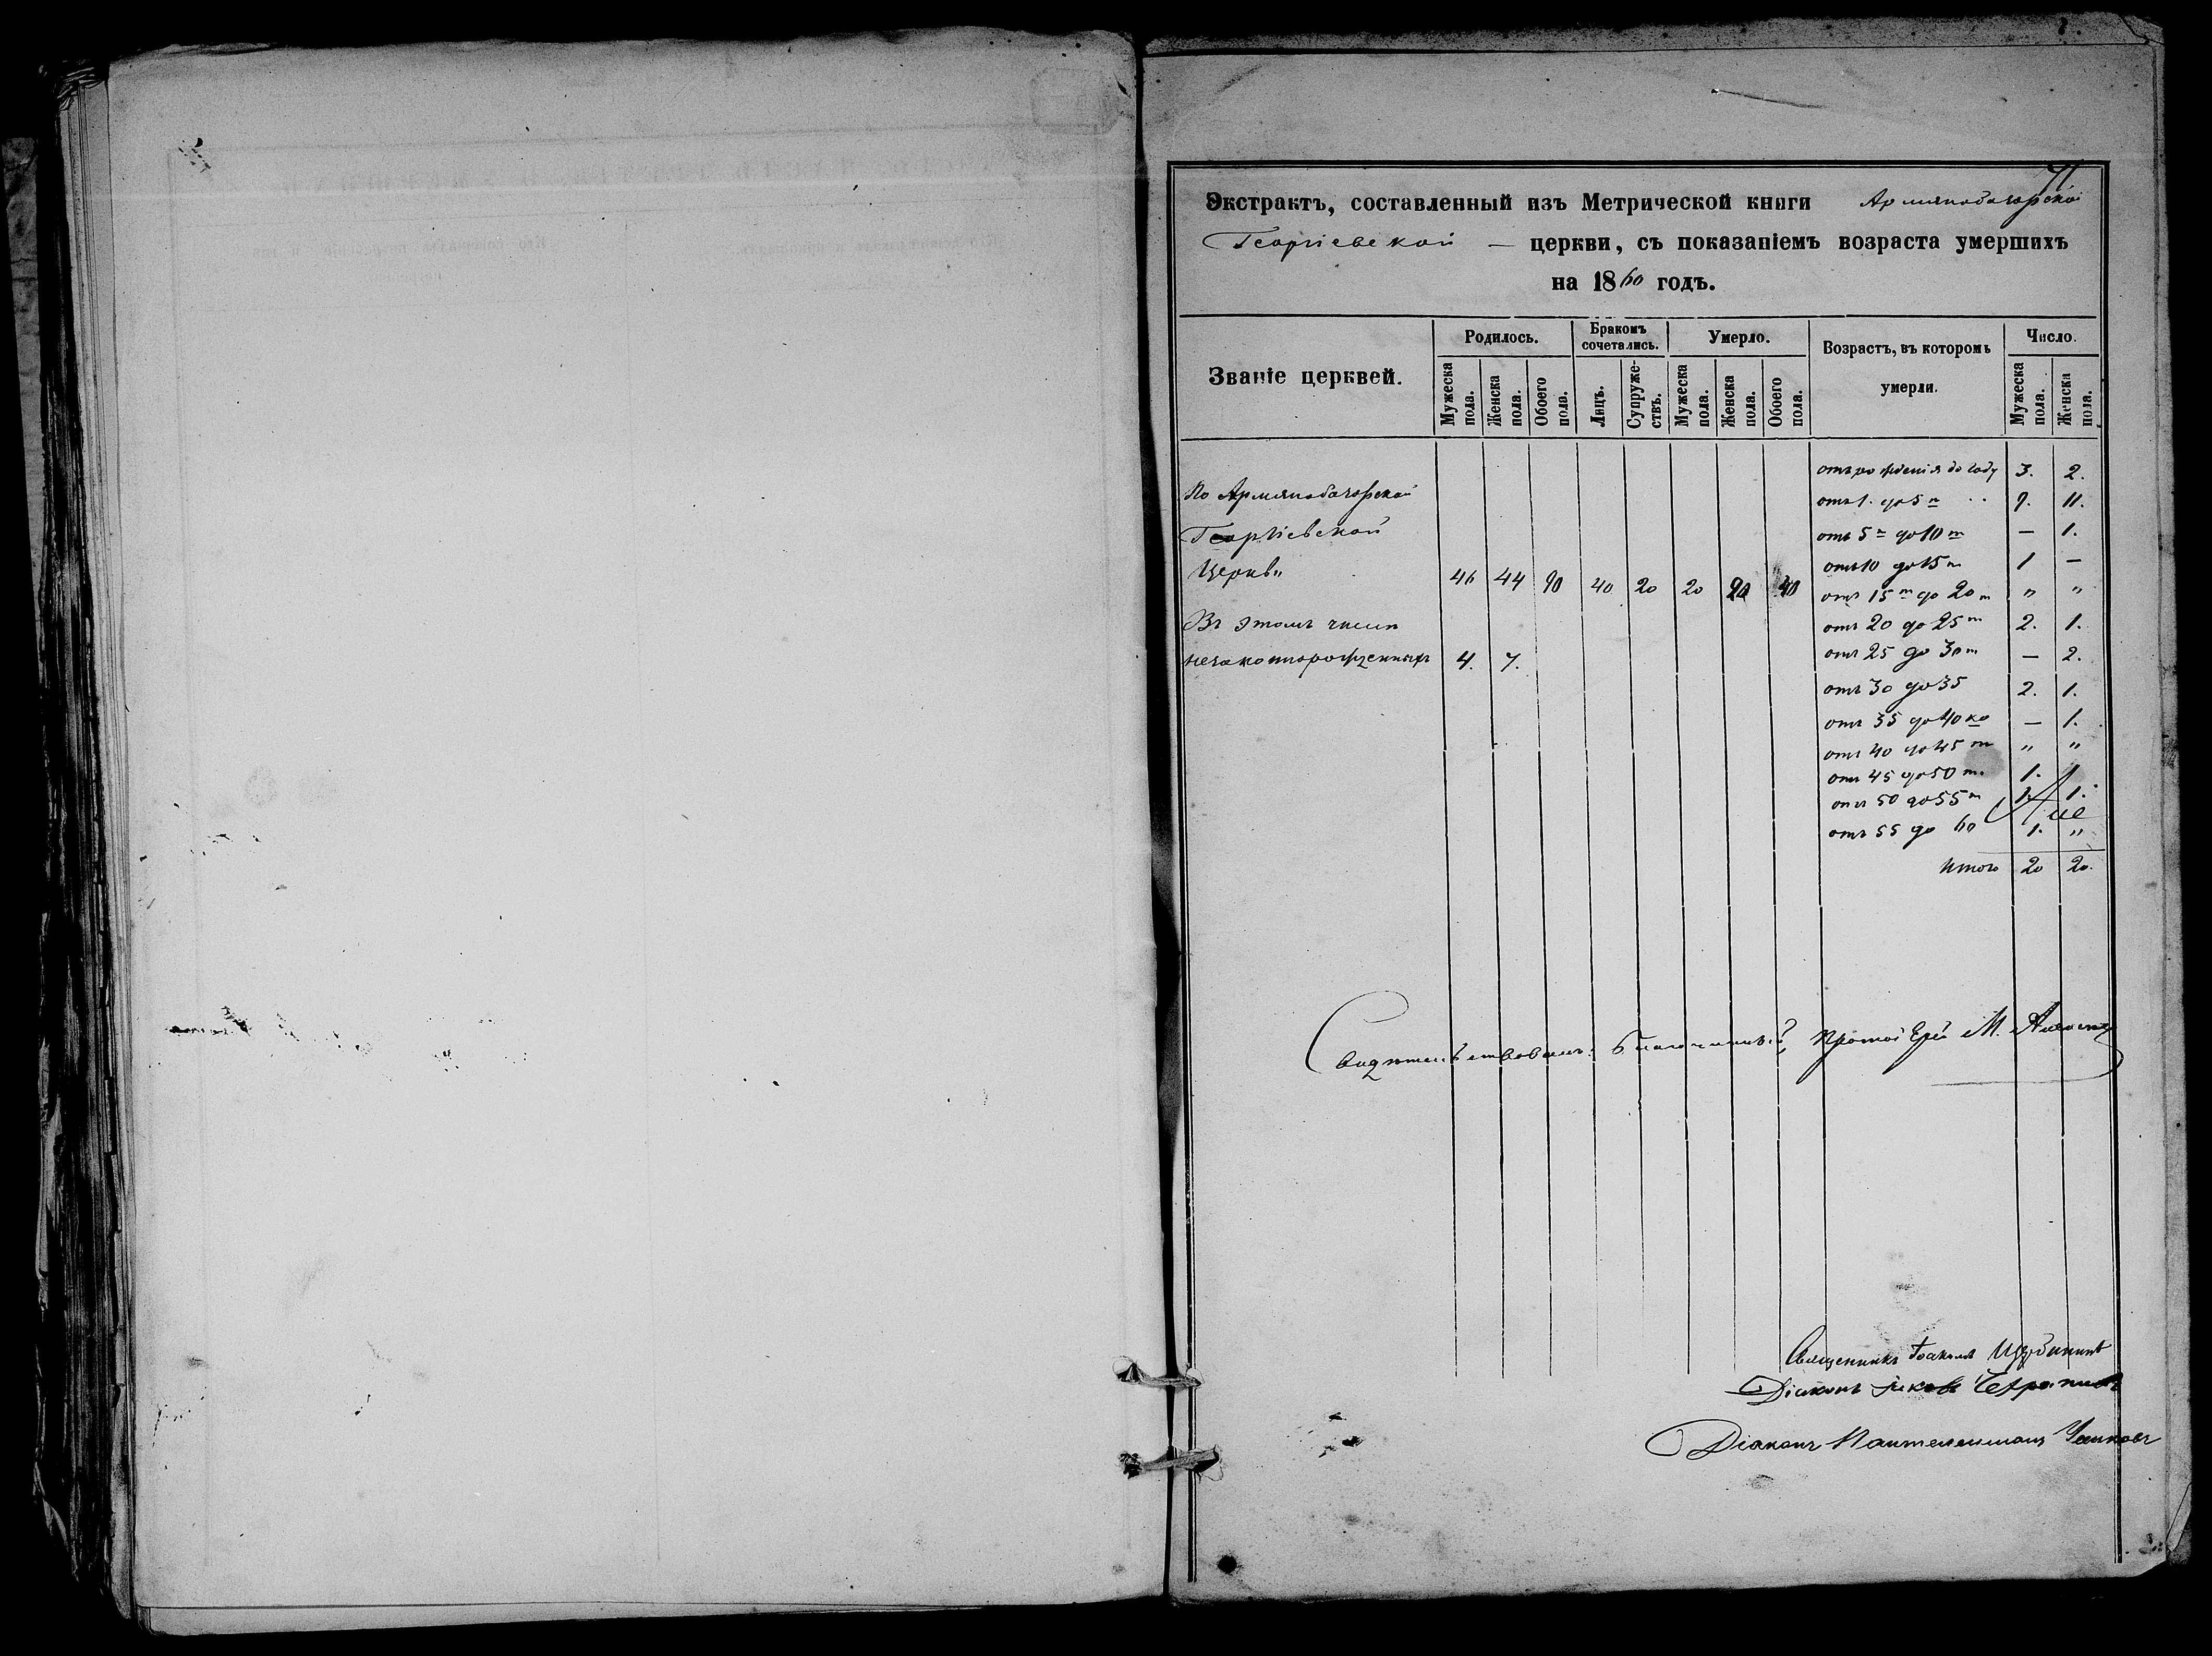 Экстрактъ, составленный изъ Метрической книги Армянобазорской
Георгіевской — церкви, съ показаніемъ возраста умершихъ
на 1860 годъ.
Званіе церквей.
Родилось.
Бракомъ сочетались.
Умерло.
Возрастъ, въ которомъ умерли.
Число.
Мужеска пола.
Женска пола.
Обоего пола.
Лицъ.
Супружествъ.
Мужеска пола.
Женска пола.
Обоего пола.
Мужеска пола.
Женска пола.
По Армянобазорской
Георгіевской
Церкви 46 44 90 40 20 20 20 40
Въ этомъ числѣ
незаконорожденныхъ 4. 7.
отъ рожденія до году 3. 2.
отъ 1. до 5 и 9. 11.
отъ 5 и до 10 т — 1.
отъ 10 до 15 т 1 —
отъ 15 т до 20 т " "
отъ 20 до 25 т 2. 1.
отъ 25 до 30 т — 2.
отъ 30 до 35 2. 1.
отъ 35 до 40 ко — 1.
отъ 40 до 45 т " "
отъ 45 до 50 т. 1.
отъ 50 до 55 т 1. 1.
отъ 55 до 60 1. "
Итого 20 20.
Свидѣтельствовалъ: благочинный, Протоіерей М.
Священникъ Іоакимъ
Діаконъ Яковъ
Діаконъ Пантелеимонъ